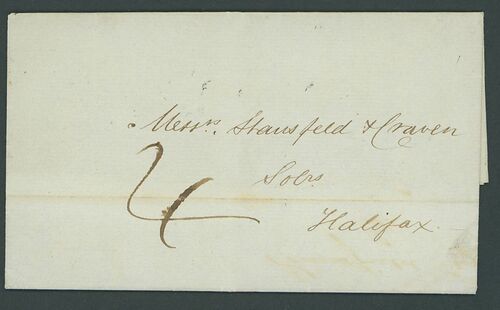 Messrs. Stansfeld & Craven
Solrs
Halifax.
4